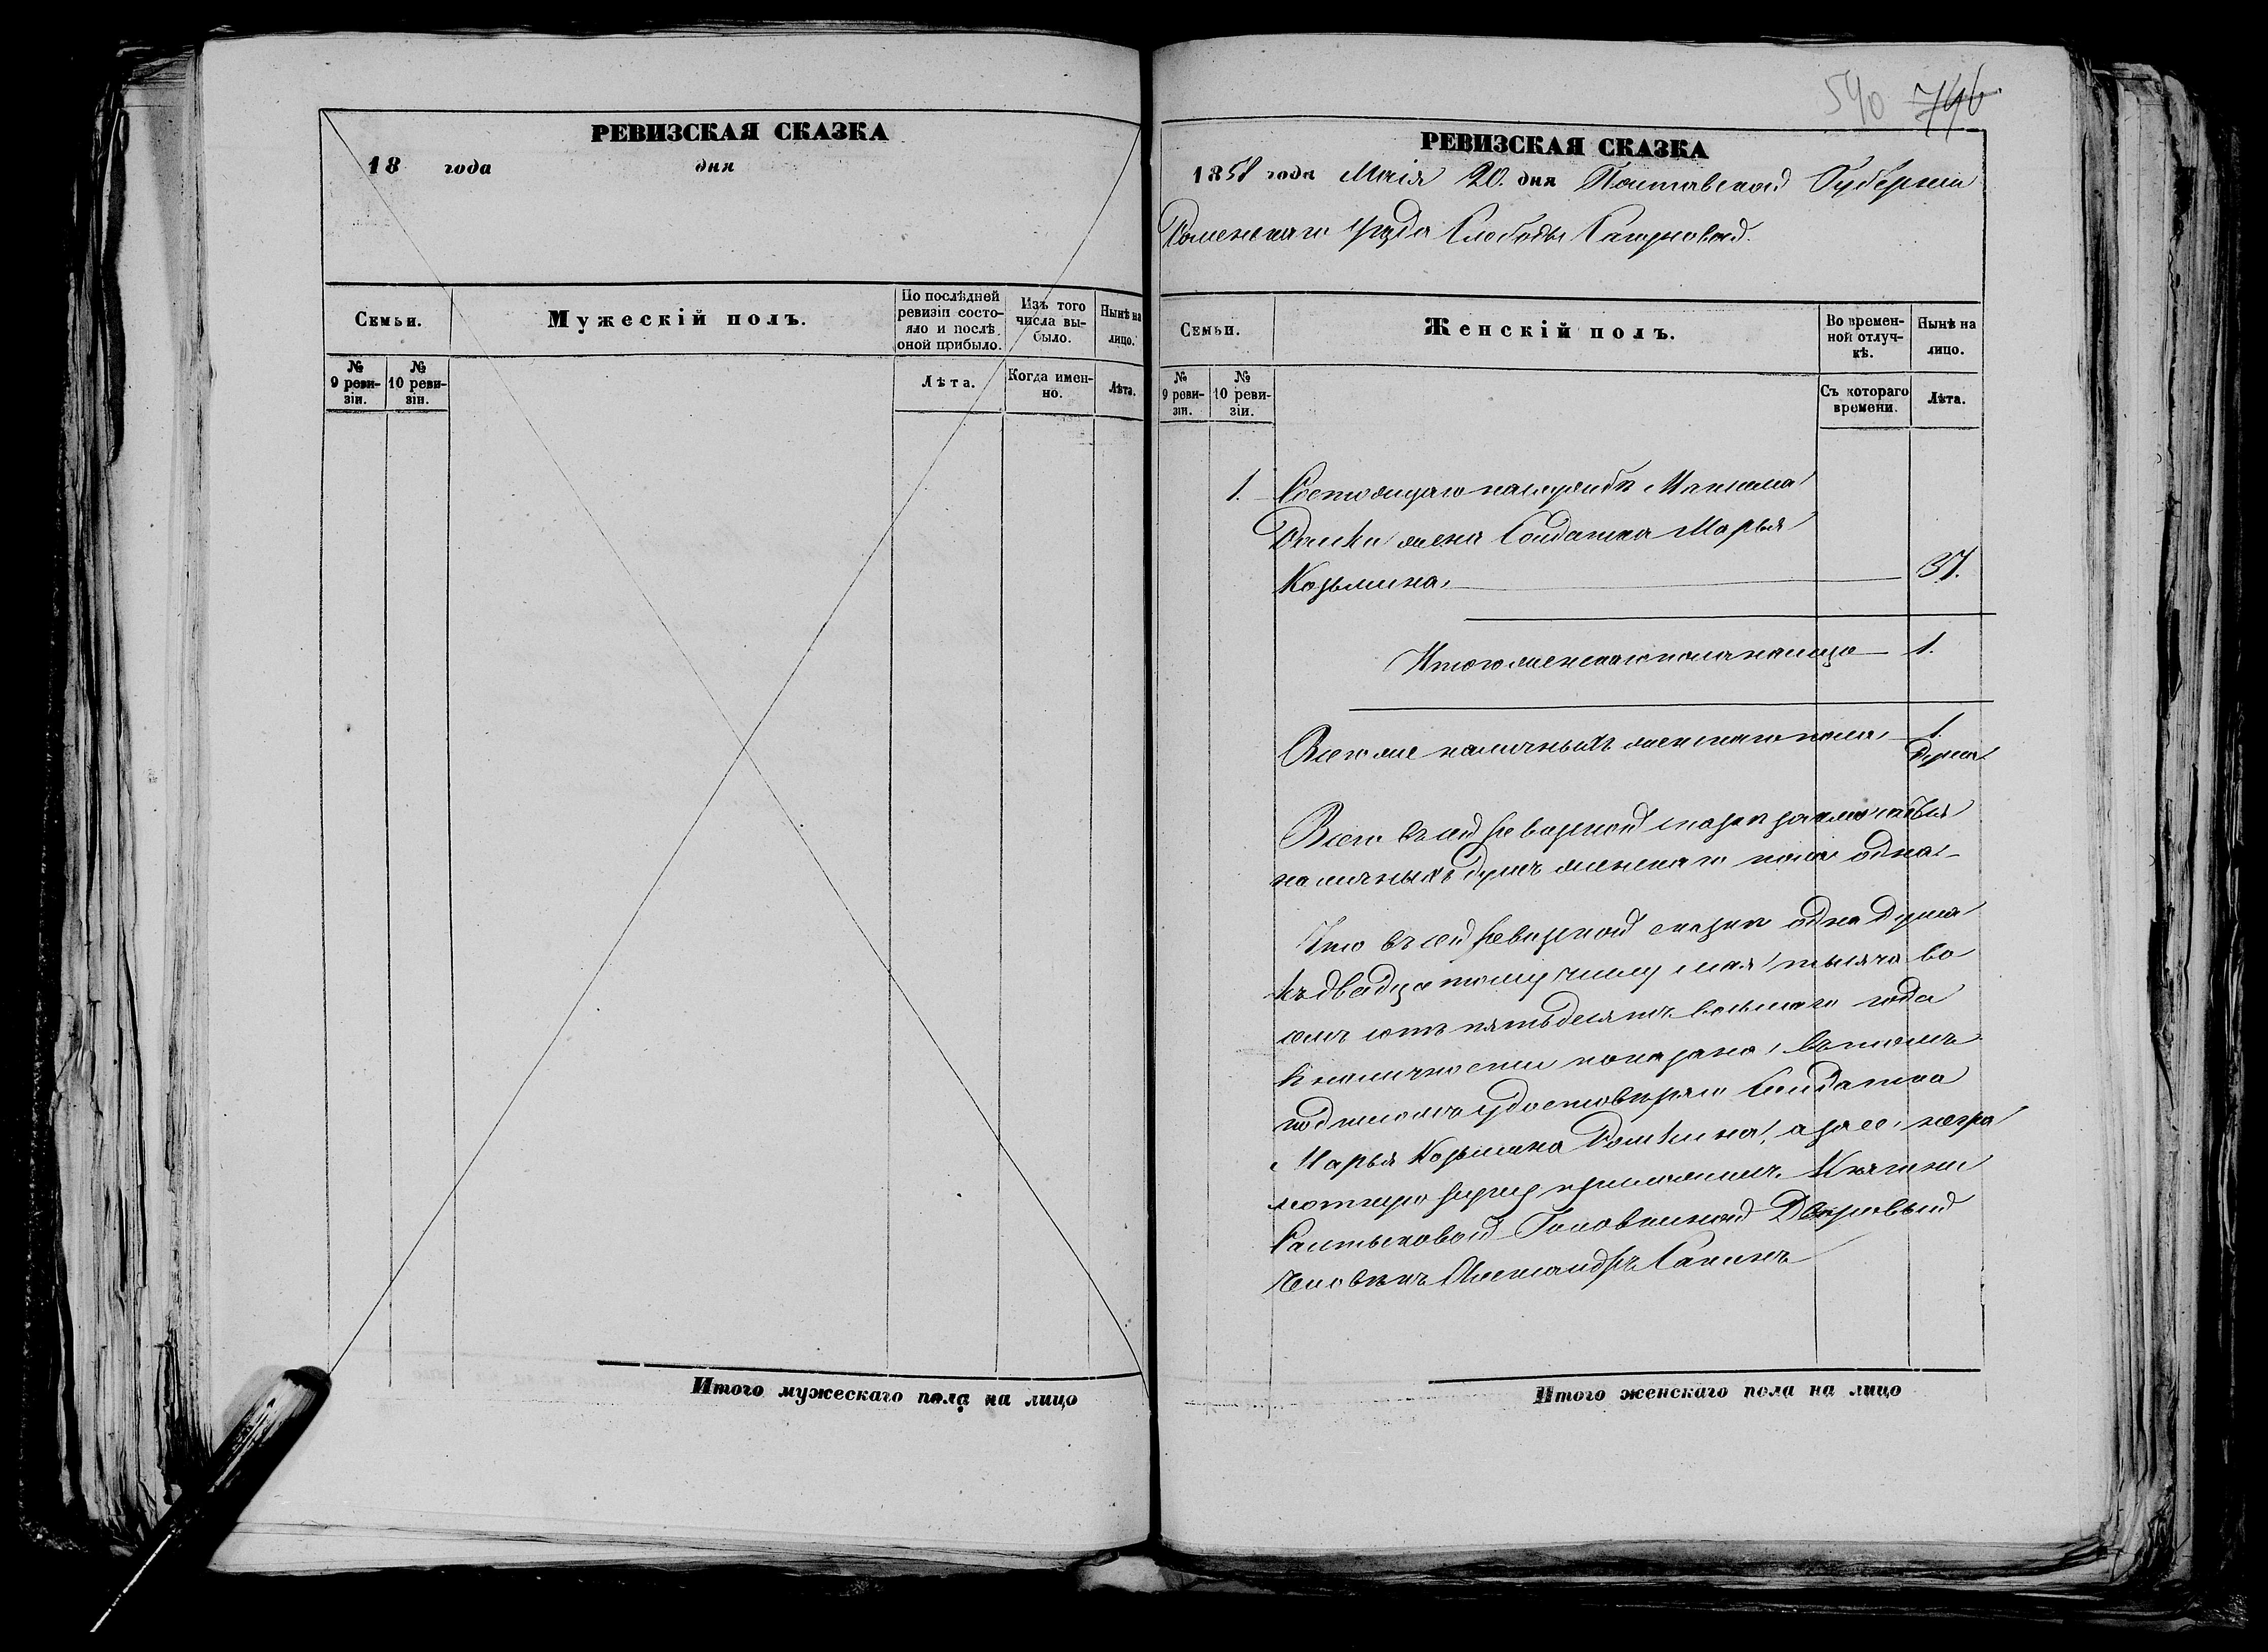 РЕВИЗСКАЯ СКАЗКА
18 года дня
Семьи.
Мужескій полъ.
По послѣдней ревизіи состояло и послѣ оной прибыло.
Изъ того числа выбыло.
Нынѣ на лицо.
№ 9 ревизіи.
№ 10 ревизіи.
Лѣта.
Когда именно.
Лѣта.
Итого мужескаго пола на лицо
540 746
РЕВИЗСКАЯ СКАЗКА
1858 года Маія 20. дня Полтавской Губерніи
Роменскаго уѣзда Слободы
Семьи.
Женскій полъ.
Во временной отлучкѣ.
Нынѣ на лицо.
№ 9 ревизіи.
№ 10 ревизіи.
Съ котораго времени.
Лѣта.
1. Состоящаго на службѣ Максима
жена Солдатка Марья
Козьмина, 37.
Итого женскаго пола на лицо 1.
Всего же наличныхъ женскаго пола 1.
душа
Всего въ сей ревизской сказкѣ
наличныхъ душъ женскаго пола одна
Что въ сей ревизской сказкѣ одна душа
къ двадцатому числу мая тысяча во
семъ сотъ пятьдесятъ восьмаго года
въ наличности показана, въ томъ
удостовѣряю Солдатка
Марья Козьмина а за ее, негра
мотную руку приложилъ Княгини
Салтыковой Головкиной Дворовый
человѣкъ Александръ
Итого женскаго пола на лицо